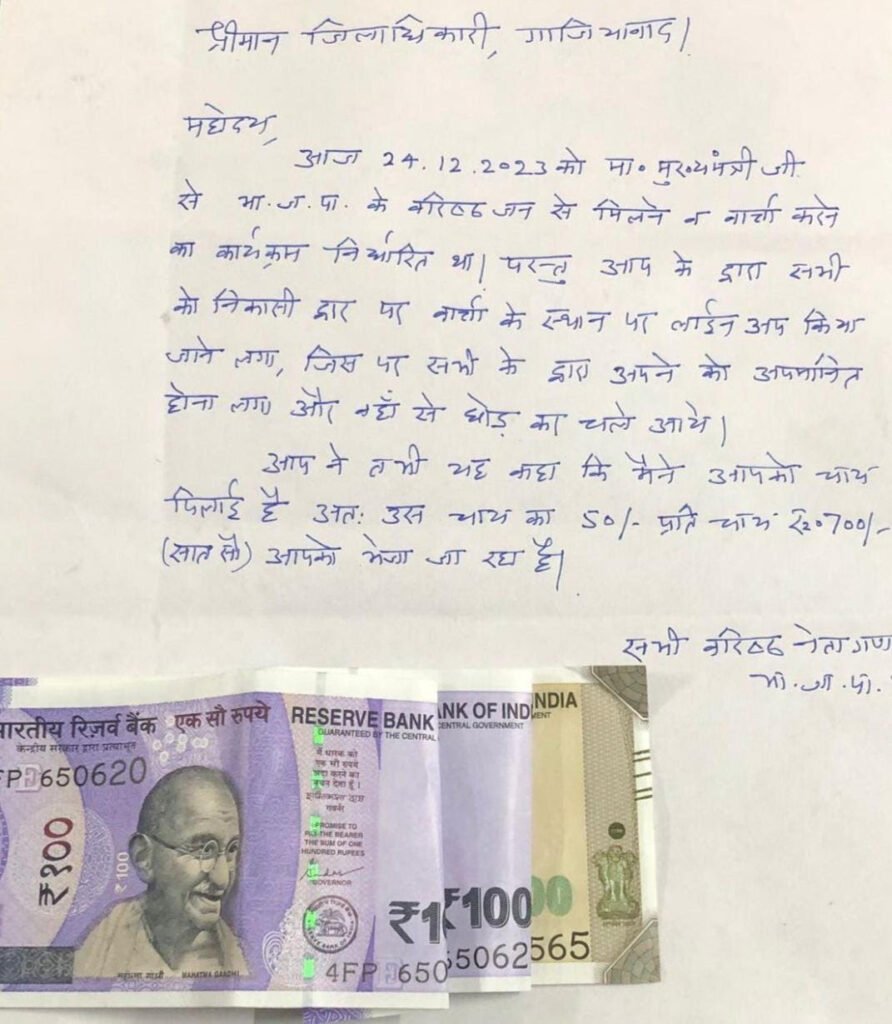 श्रीमान जिलाधिकारी, गाजियाबाद।
महोदय,
आज 24.12.2023 को मा० मुख्यमंत्री जी
से भा.ज.पा. के वरिष्ठ जन से मिलने व वार्ता करने
का कार्यक्रम निर्धारित था। परन्तु आप के द्वारा सभी
को निकासी द्वार पर वार्ता के स्थान पर लाईन अप किया
जाने लगा, जिस पर सभी के द्वारा अपने को अपमानित
होना लगा और वहाँ से छोड़ का चले आये।
आप ने तभी यह कहा कि मैने आपको चाय
पिलाई है अतः उस चाय का 50/- प्रति चाय रु० 700/-
(सात सौ) आपको भेजा जा रहा है।
सभी वरिष्ठ नेता गण
भा.ज.पा.
भारतीय रिज़र्व बैंक एक सौ रुपये RESERVE BANK ANK OF IND NDIA
केन्द्रीय सरकार द्वारा प्रत्याभूत GUARANTEED BY THE CENTRAL CENTRAL GOVERNMENT MENT
FP 650620
मैं धारक को
एक सौ रुपये
अदा करने का
वचन देता हूँ।
गवर्नर
I PROMISE TO
PAY THE BEARER
THE SUM OF ONE
HUNDRED RUPEES
GOVERNOR
₹१००
₹100
₹1 ₹100 00
महात्मा गांधी MAHATMA GANDHI
4FP 650 65062 565